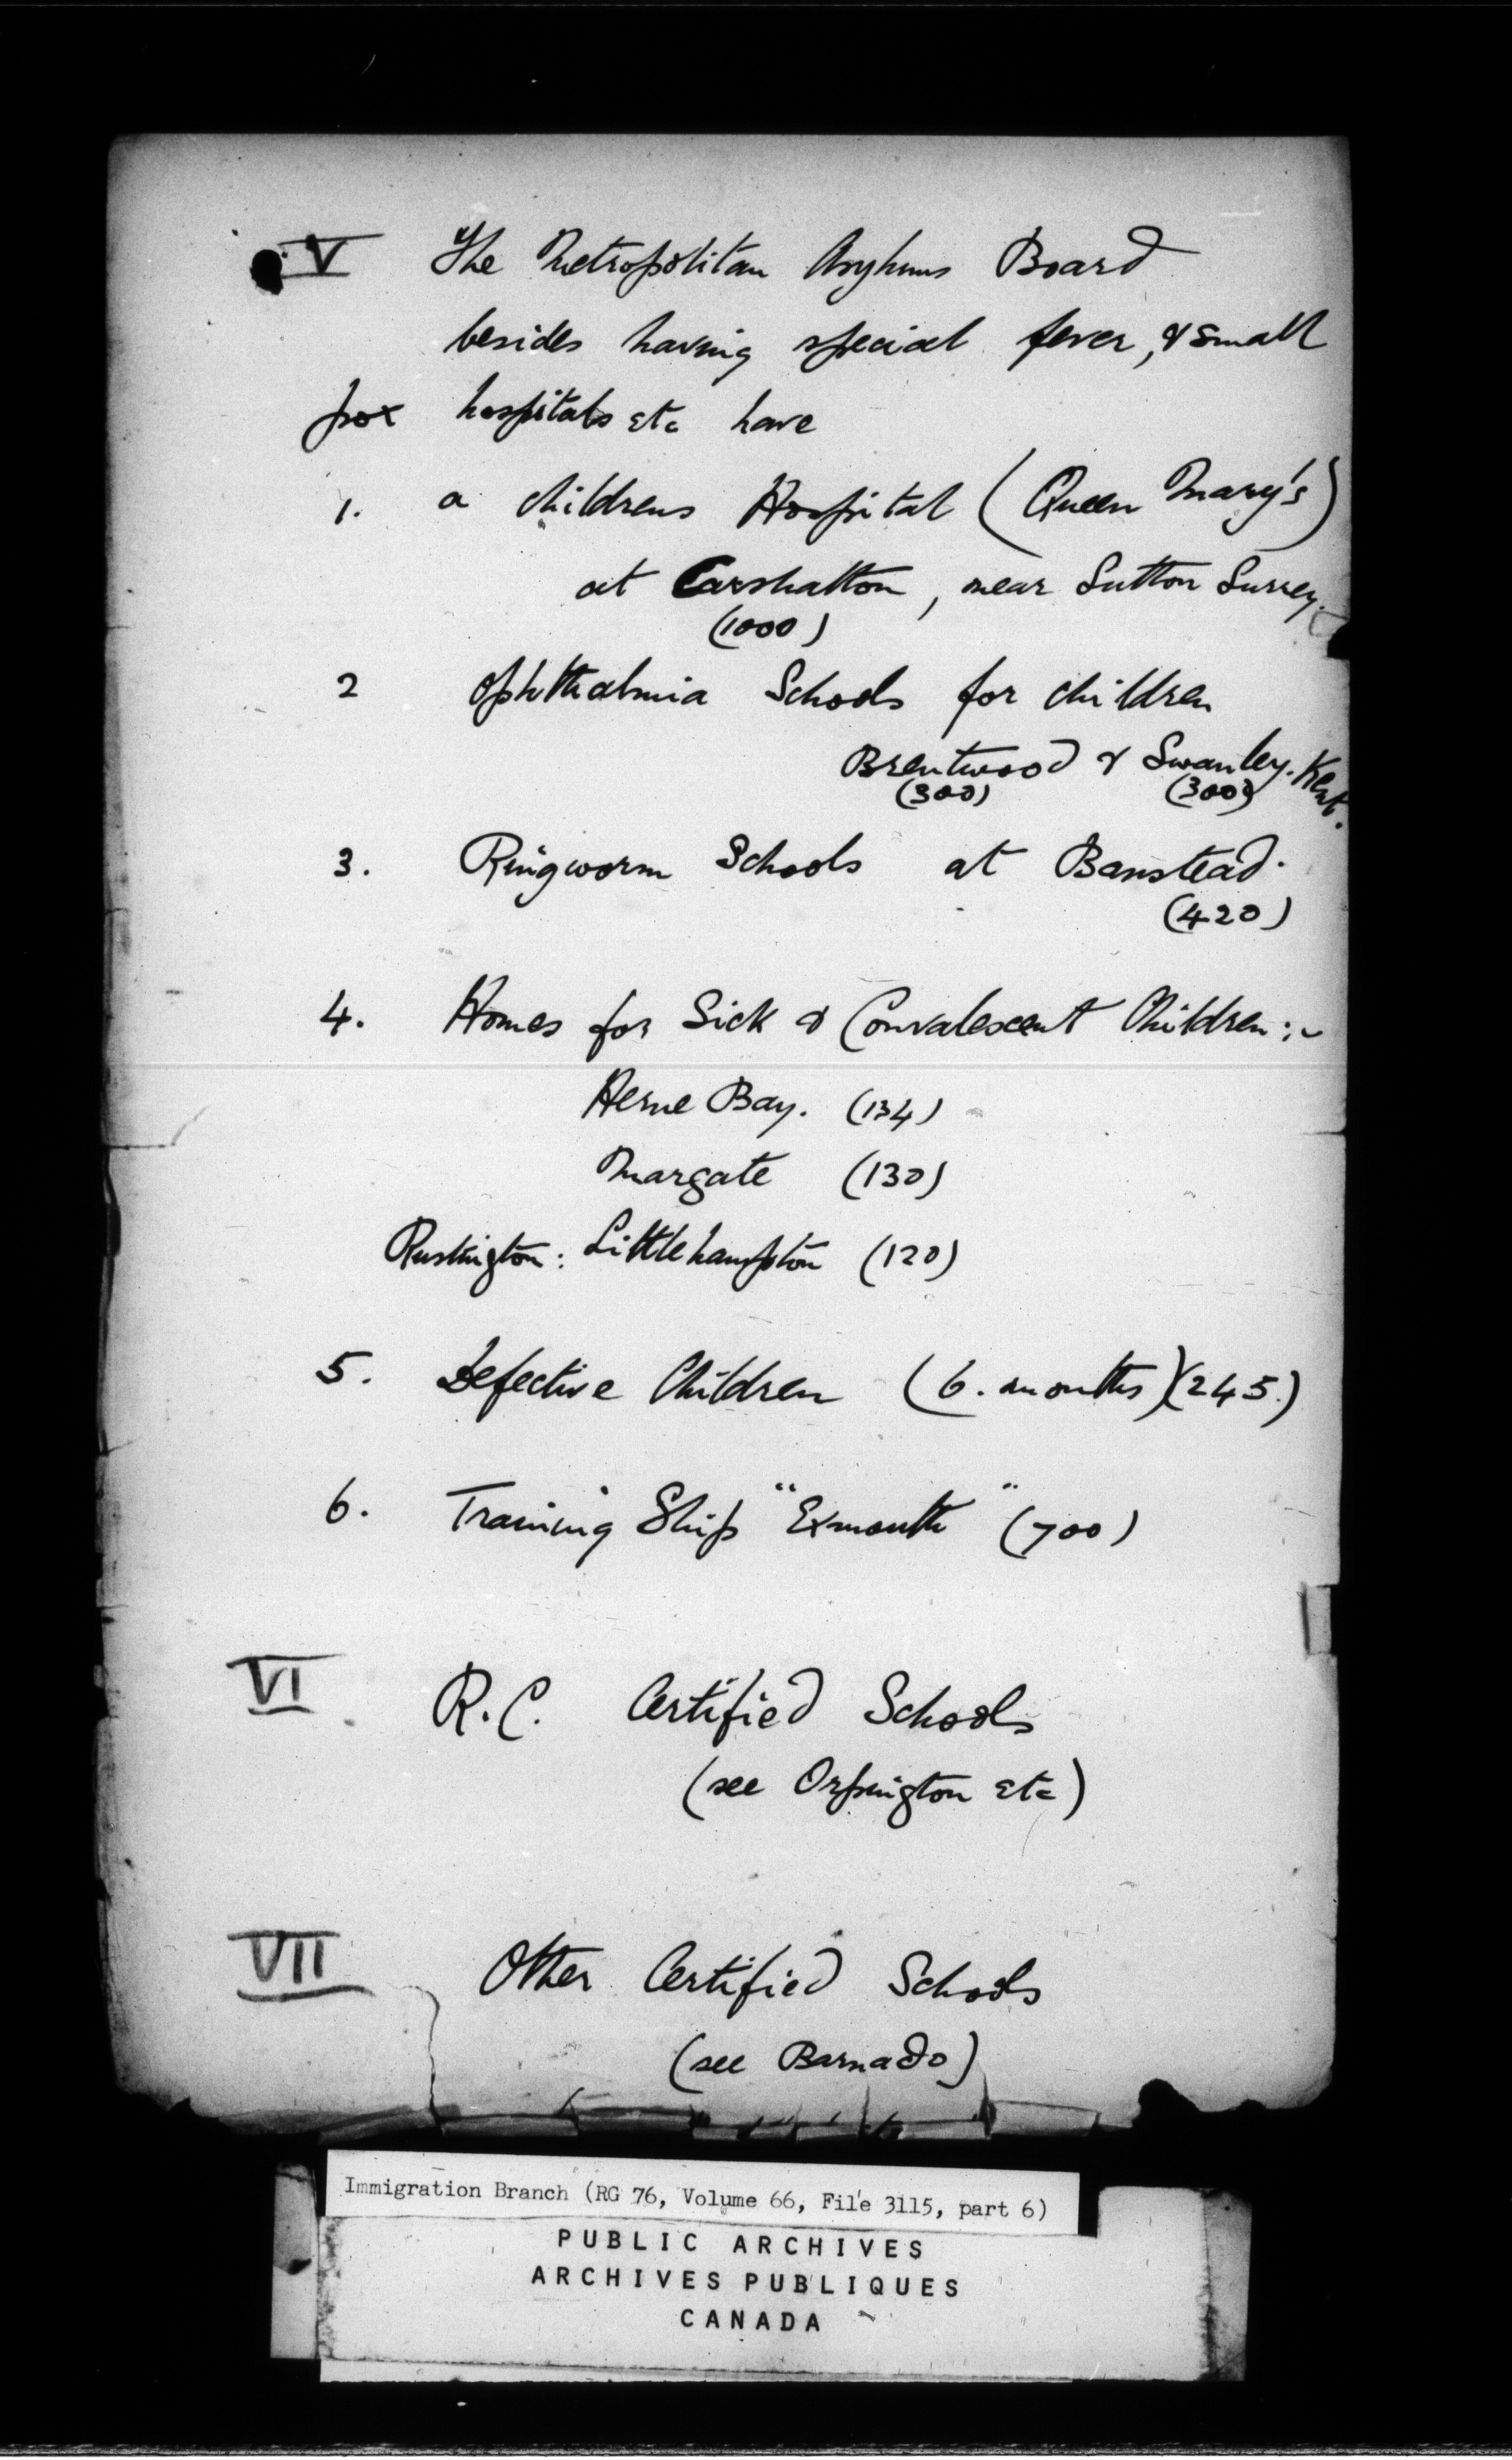 V The Metropolitan Asylums Board
besides having special fever, & small
pox hospitals etc have
1. a childrens Hospital (Queen Mary's)
at Carshalton, near Sutton Surrey.
(1000)
2 Ophthalmia Schools for children
Brentwood & Swanley. Kent.
(300) (300)
3. Ringworm Schools at Banstead.
(420)
4. Homes for Sick & Convalescent Children:~
Herne Bay. (134)
Margate (130)
Rustington: Littlehampton (120)
5. Defective Children (6. months)(245.)
6. Training Ship "Exmouth" (700)
VI R.C. Certified Schools
(see Orpington etc)
VII Other Certified Schools
(see Barnado)
Immigration Branch (RG 76, Volume 66, File 3115, part 6)
PUBLIC ARCHIVES
ARCHIVES PUBLIQUES
CANADA